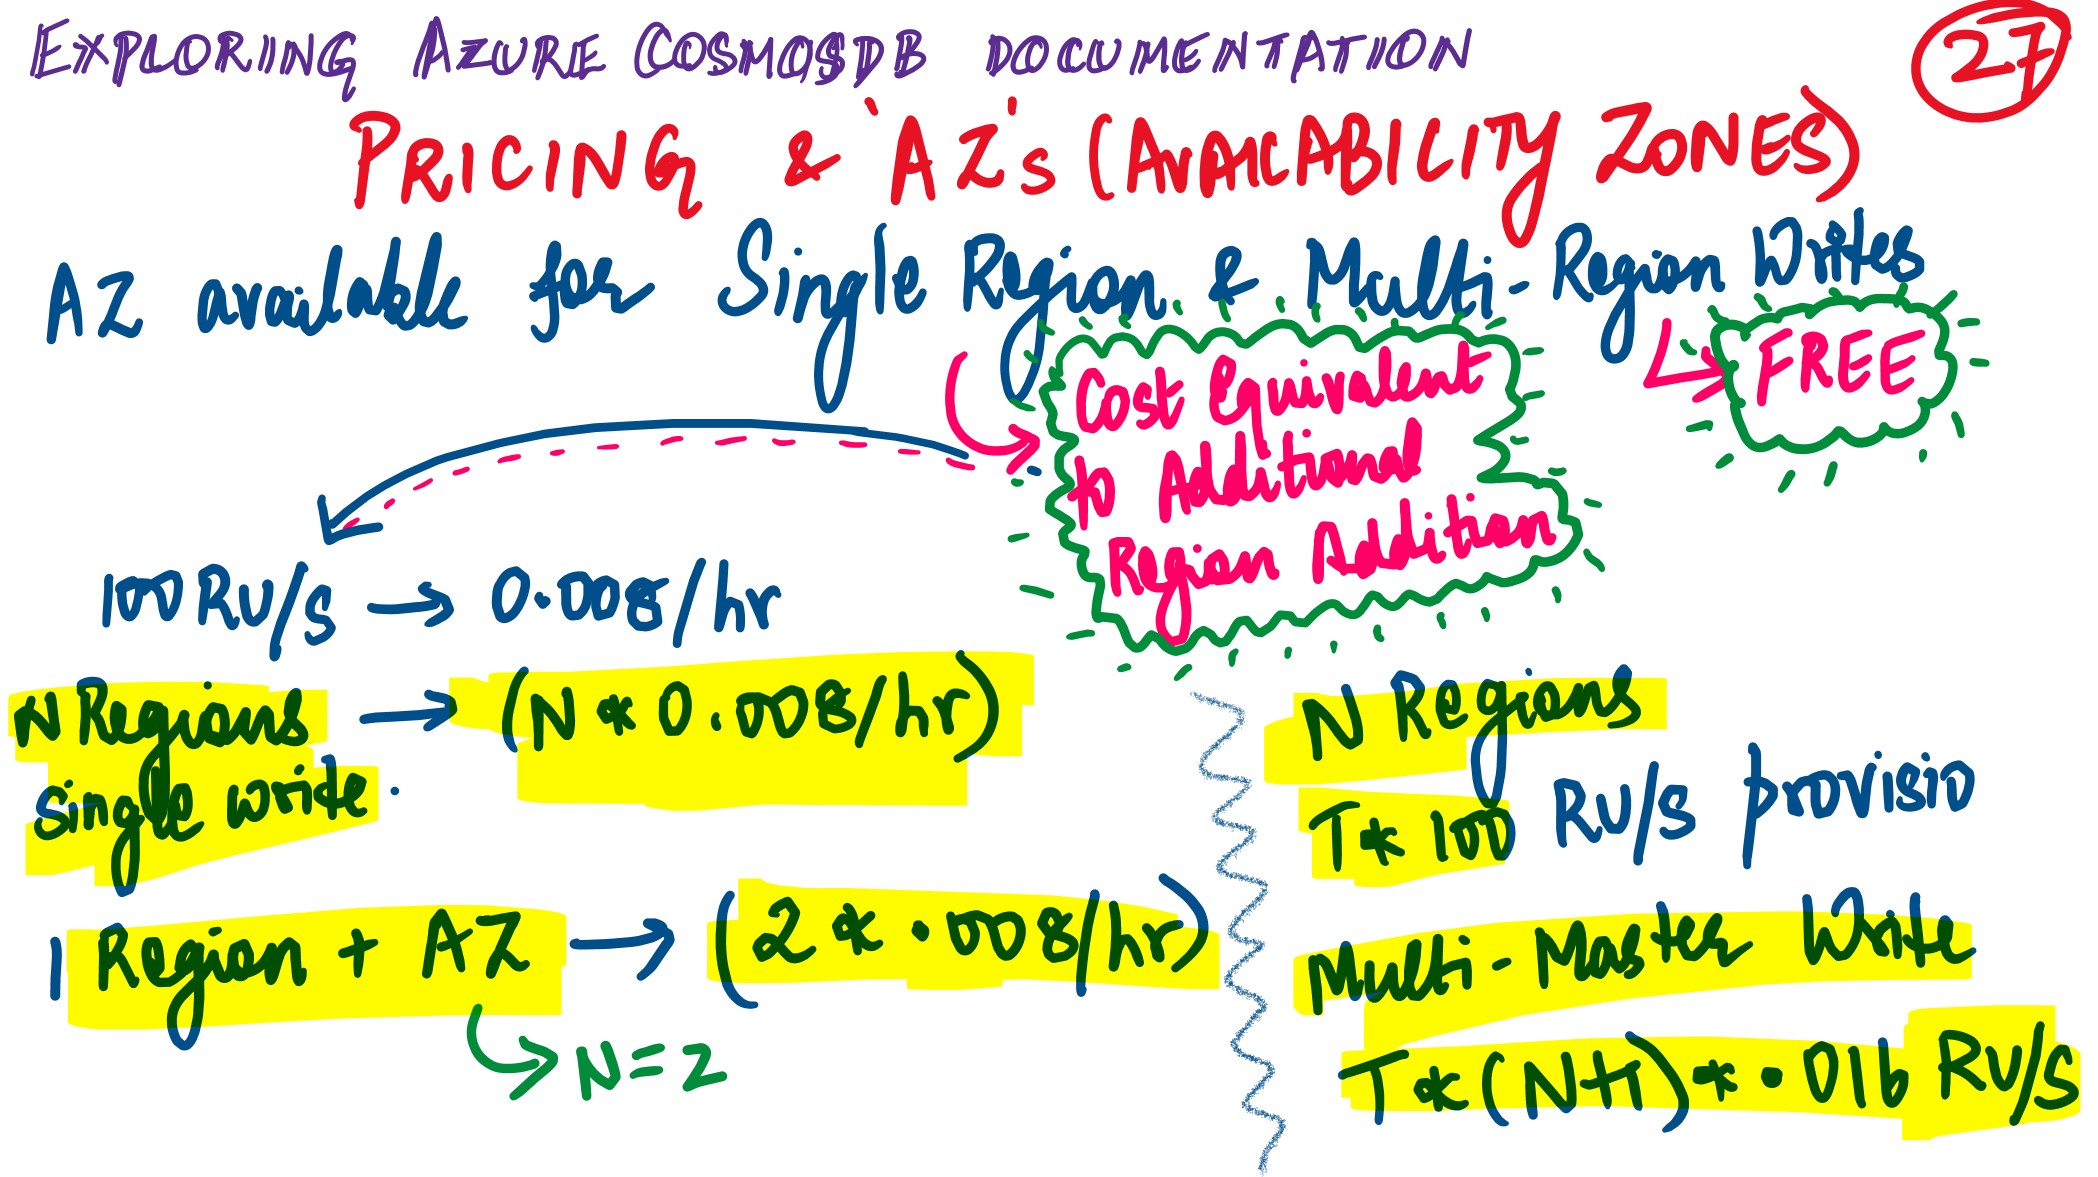 EXPLORING AZURE COSMOSDB DOCUMENTATION
27
PRICING & 'AZ's (AVAILABILITY ZONES)
AZ available for Single Region & Multi-Region Writes
FREE
Cost Equivalent
to Additional
Region Addition
100 RU/s → 0.008/hr
N Regions → (N * 0.008/hr)
single write.
1 Region + AZ → (2 * .008/hr)
N=2
N Regions
T* 100 RU/s provisio
Multi-Master Write
T*(N+1) * .016 RU/S